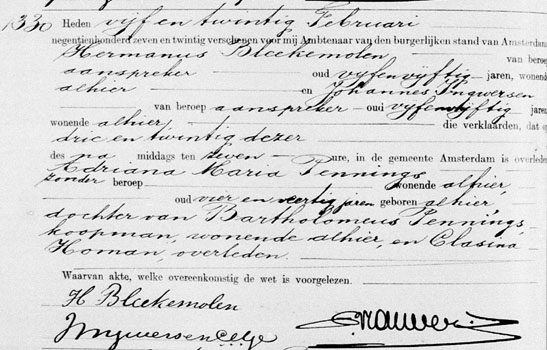 1330 Heden vijf en twintig Februari
negentienhonderd zeven en twintig verschenen voor mij Ambtenaar van den burgerlijken stand van Amsterdam
Hermanus Bleekemolen van beroep
aanspreker oud vijfenvijftig jaren, wonende
alhier en Johannes Ingwersen
van beroep aanspreker oud vijfenvijftig jaren
wonende alhier die verklaarden, dat op
drie en twintig dezer
des na middags ten zeven ure, in de gemeente Amsterdam is overleden
Adriana Maria Pennings
zonder beroep wonende alhier,
oud vier en veertig jaren geboren alhier
dochter van Bartholomeus Pennings,
koopman, wonende alhier, en Clasina
Homan, overleden.
Waarvan akte, welke overeenkomstig de wet is voorgelezen.
H Bleekemolen
J Ingwersen